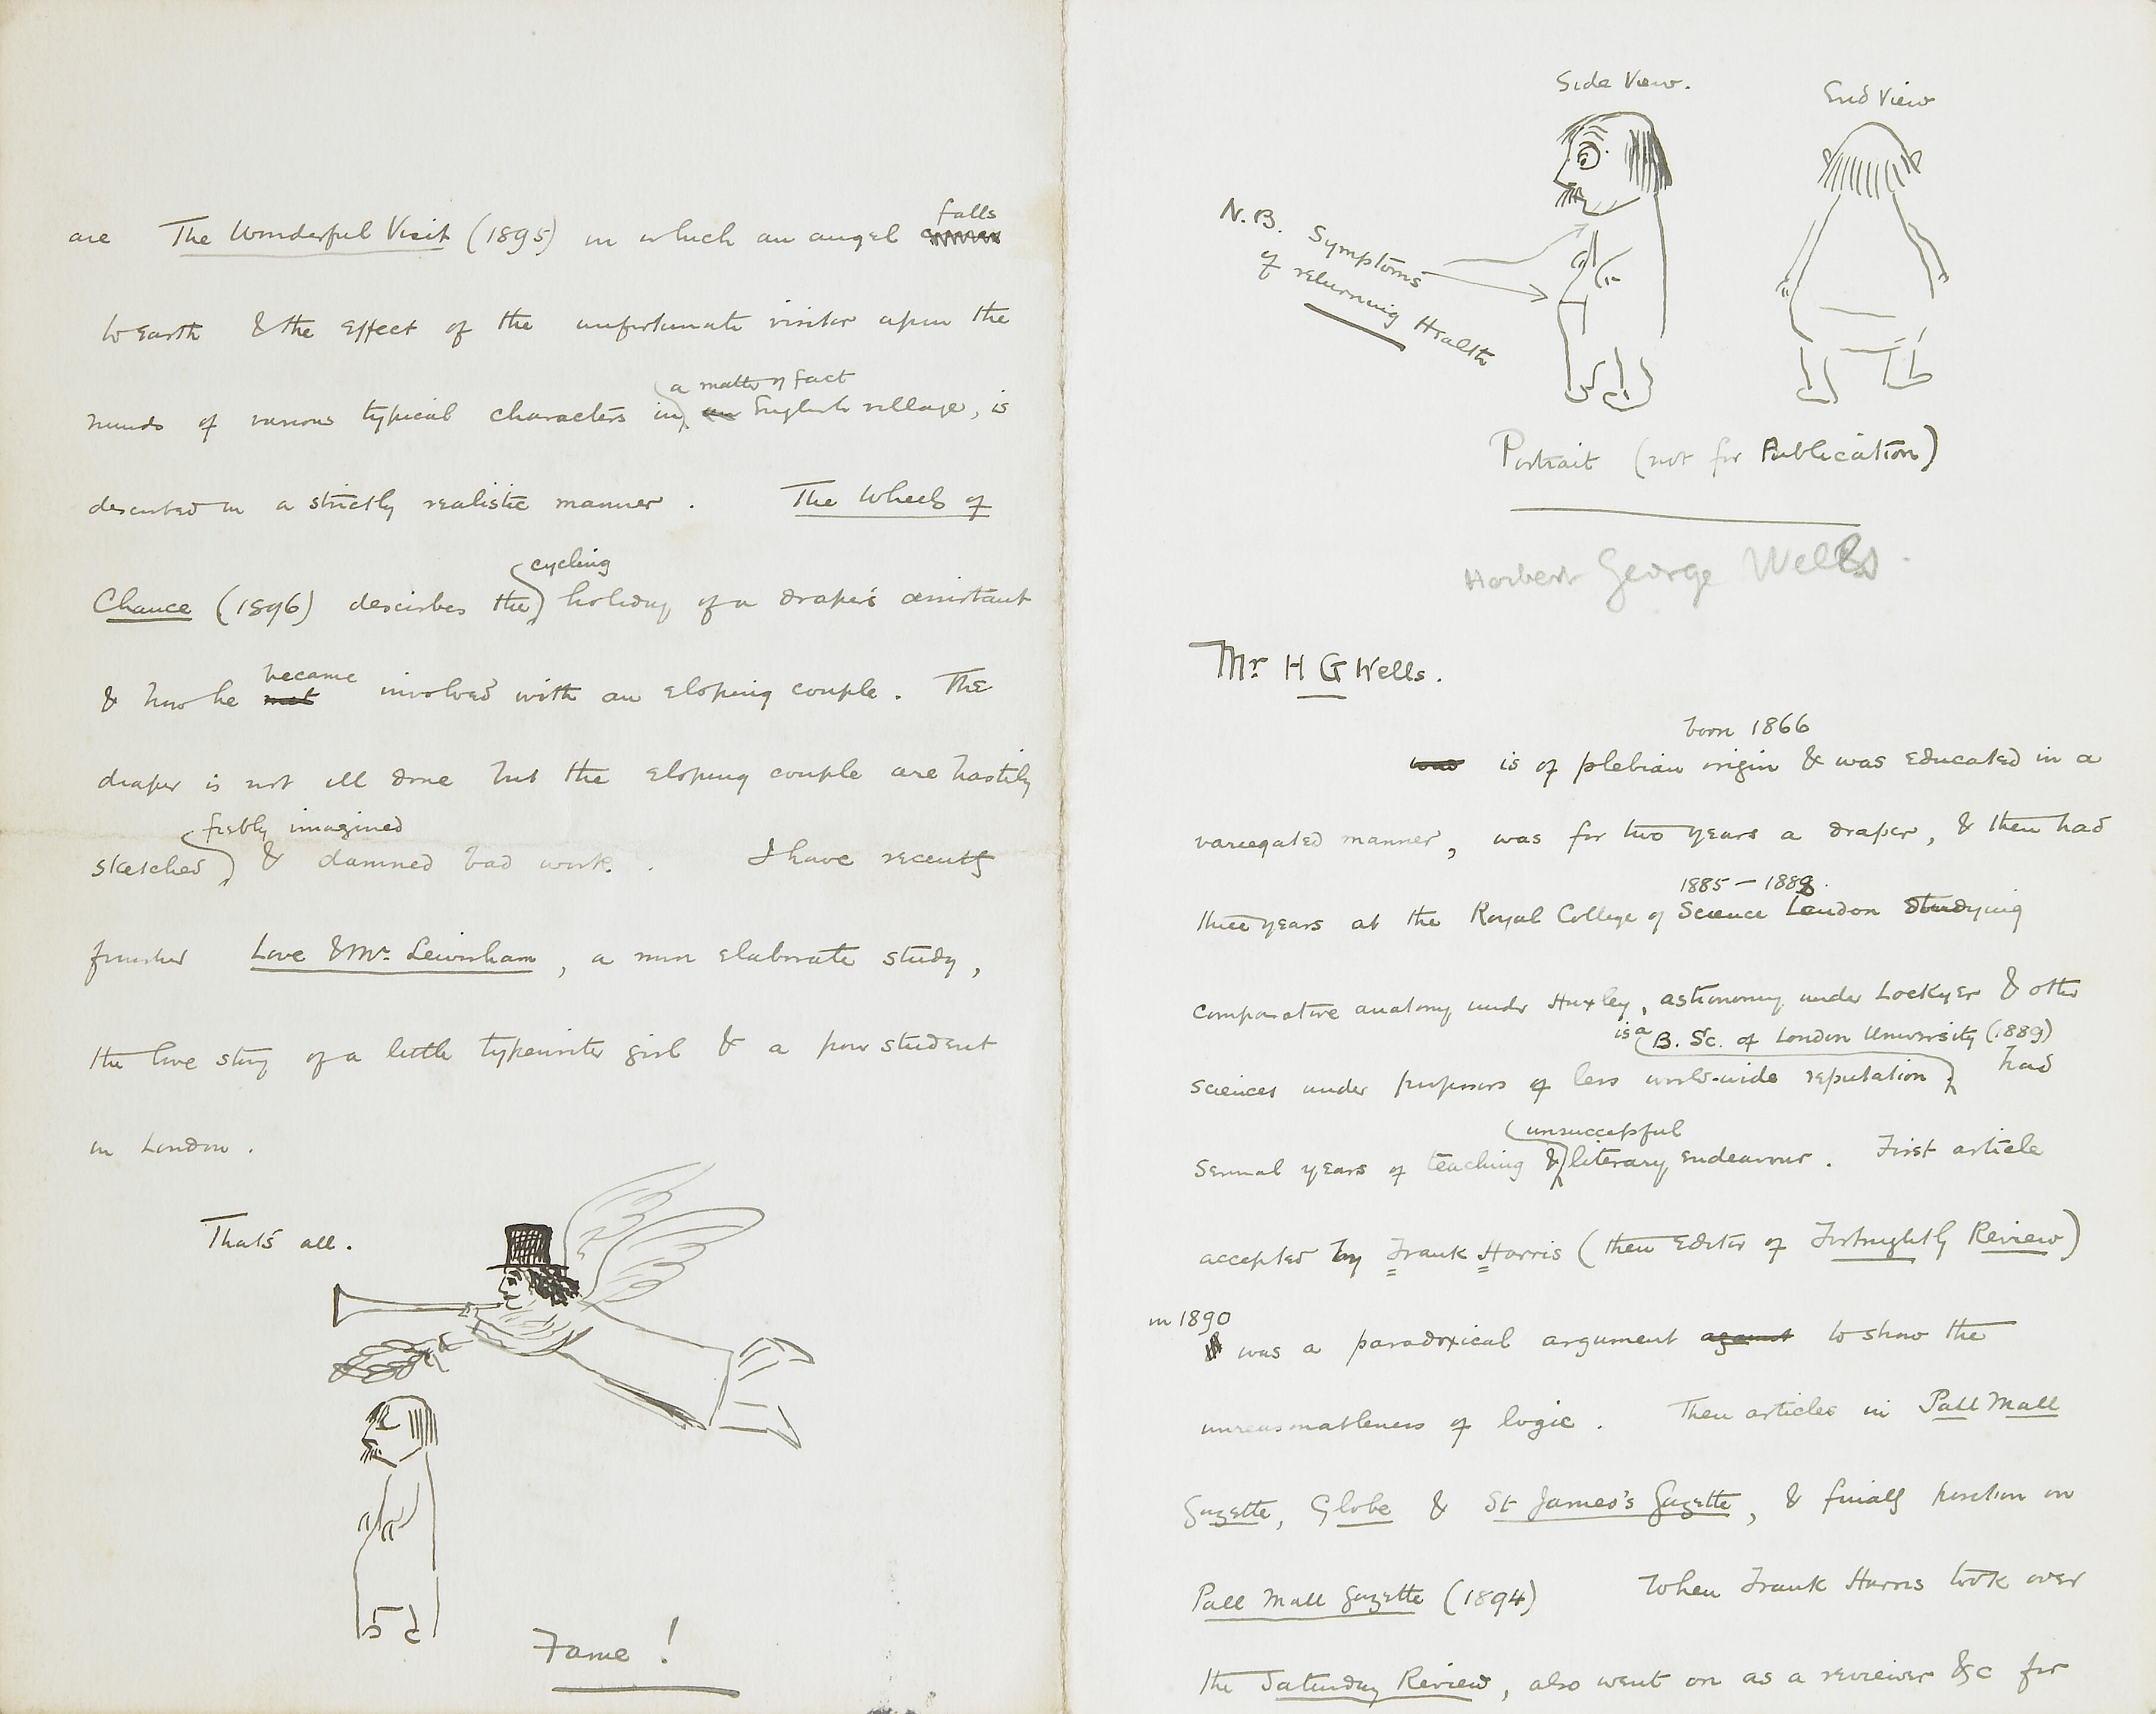 are The Wonderful Visit (1895) in which an angel falls
to Earth & the Effect of the unfortunate visitor upon the
minds of various typical characters in a matter of fact English village, is
described in a strictly realistic manner. The Wheels of
Chance (1896) describes the cycling holiday of a draper's assistant
& how he became involved with an eloping couple. The
draper is not ill done but the eloping couple are hastily
sketched feebly imagined & damned bad work. I have recently
finished Love & Mr. Lewisham, a more elaborate study,
the love story of a little typewriter girl & a poor student
in London.
That's all.
Fame!
Side View.
End View
N.B. Symptoms
of returning Health
Portrait (not for Publication)
Herbert George Wells.
Mr H G Wells.
born 1866
was is of plebian origin & was educated in a
variegated manner, was for two years a draper, & then had
1885 – 1888
three years at the Royal College of Science London studying
comparative anatomy under Huxley, astronomy under Lockyer & other
is a B. Sc. of London University (1889)
sciences under professors of less world-wide reputation, had
unsuccessful
several years of teaching & literary endeavour. First article
accepted by Frank Harris (then Editor of Fortnightly Review)
in 1890
was a paradoxical argument against to show the
unreasonableness of logic. Then articles in Pall Mall
Gazette, Globe & St James's Gazette, & finally position on
Pall Mall Gazette (1894) When Frank Harris took over
the Saturday Review, also went on as a reviewer &c for